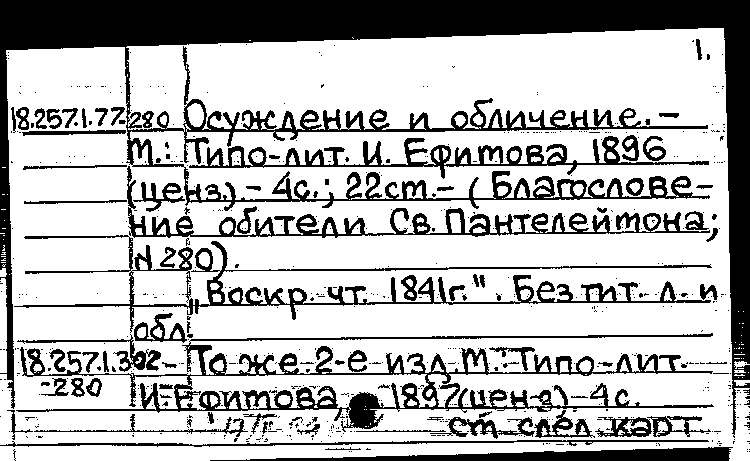 1.
18.257.1.77-280 Осуждение и обличение. –
М.: Типо-лит. И. Ефимова, 1896
(ценз.). – 4с.; 22см. – (Благослове-
ние обители Св. Пантелеймона;
N 280).
„Воскр. чт. 1841г.". Без тит. л. и
обл.
18.257.1.302- То же. 2-е изд. М.: Типо-лит.
-280 И. Ефимова, 1897(ценз). – 4с.
см. след. карт.